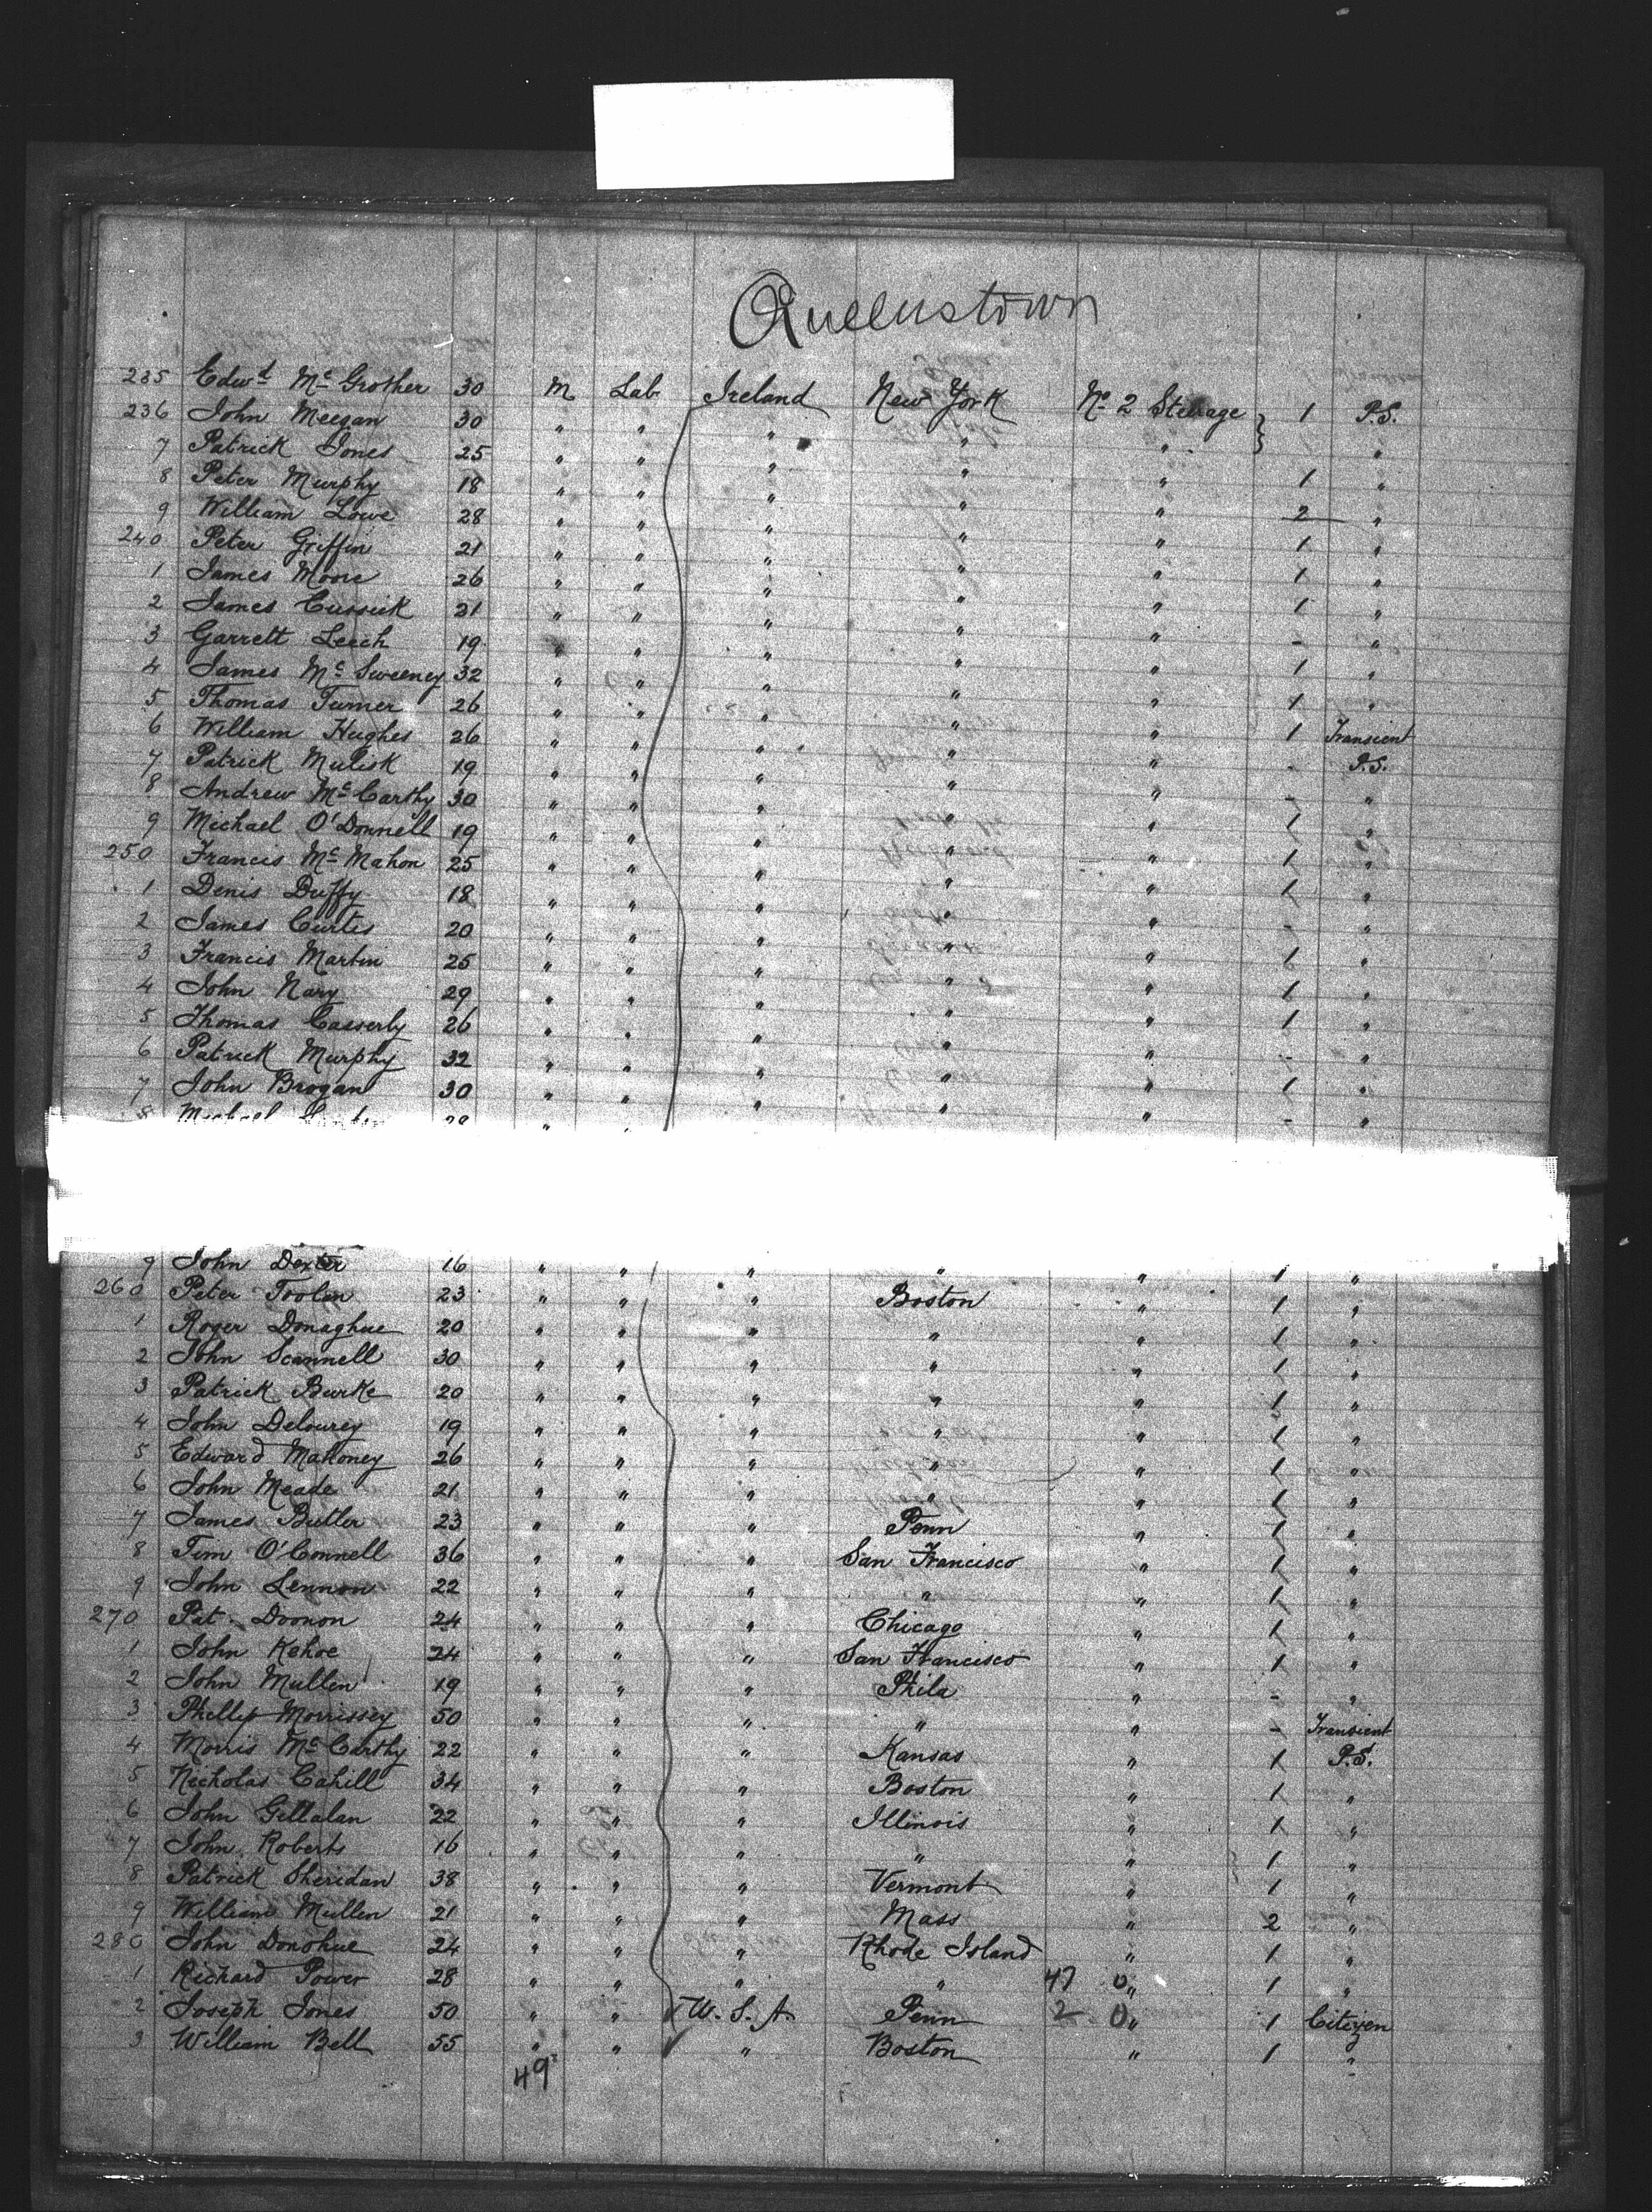 Queenstown
235 Edwd Mc Grother 30 M Lab Ireland New York No 2 Steerage } 1 P.S.
236 John Meegan 30 " " " " " "
7 Patrick Jones 25 " " " " " 1 "
8 Peter Murphy 18 " " " " " 2 "
9 William Lowe 28 " " " " " 1 "
240 Peter Griffin 21 " " " " " 1 "
1 James Moore 26 " " " " " 1 "
2 James Cussick 21 " " " " " - "
3 Garrett Leech 19 " " " " " 1 "
4 James Mc Sweeney 32 " " " " " 1 "
5 Thomas Turner 26 " " " " " 1 Transient
6 William Hughes 26 " " " " " - P.S.
7 Patrick 19 " " " " " - "
8 Andrew Mc Carthy 30 " " " " " 1 "
9 Michael O'Donnell 19 " " " " " 1 "
250 Francis Mc Mahon 25 " " " " " 1 "
1 Denis Duffy 18 " " " " " - "
2 James Curtis 20 " " " " " 1 "
3 Francis Martin 25 " " " " " 1 "
4 John Nary 29 " " " " " 1 "
5 Thomas Casserly 26 " " " " " - "
6 Patrick Murphy 32 " " " " " 1 "
7 John Brogan 30 " " " " " - "
8 Michael
9 John Dexter 16 " " " " " 1 "
260 Peter Toolan 23 " " " Boston " 1 "
1 Roger Donaghue 20 " " " " " 1 "
2 John Scannell 30 " " " " " 1 "
3 Patrick Burke 20 " " " " " 1 "
4 John Delourey 19 " " " " " 1 "
5 Edward Mahoney 26 " " " " " 1 "
6 John Meade 21 " " " " " 1 "
7 James Butler 23 " " " Penn " 1 "
8 Tim O'Connell 36 " " " San Francisco " 1 "
9 John Lennon 22 " " " " " 1 "
270 Pat Doonon 24 " " " Chicago " 1 "
1 John Kehoe 24 " " " San Francisco " 1 "
2 John Mullen 19 " " " Phila " - "
3 Phillip Morrissey 50 " " " " " - Transient
4 Morris Mc Carthy 22 " " " Kansas " 1 P.S.
5 Nicholas Cahill 34 " " " Boston " 1 "
6 John Gillalan 22 " " " Illinois " 1 "
7 John Roberts 16 " " " " " 1 "
8 Patrick Sheridan 38 " " " Vermont " 1 "
9 William Mullen 21 " " " Mass " 2 "
280 John Donohue 24 " " " Rhode Island " 1 "
1 Richard Power 28 " " " " 47 0 " 1 "
2 Joseph Jones 50 " " U.S.A. Penn 2 0 " 1 Citizen
3 William Bell 55 " " " Boston " 1 "
49